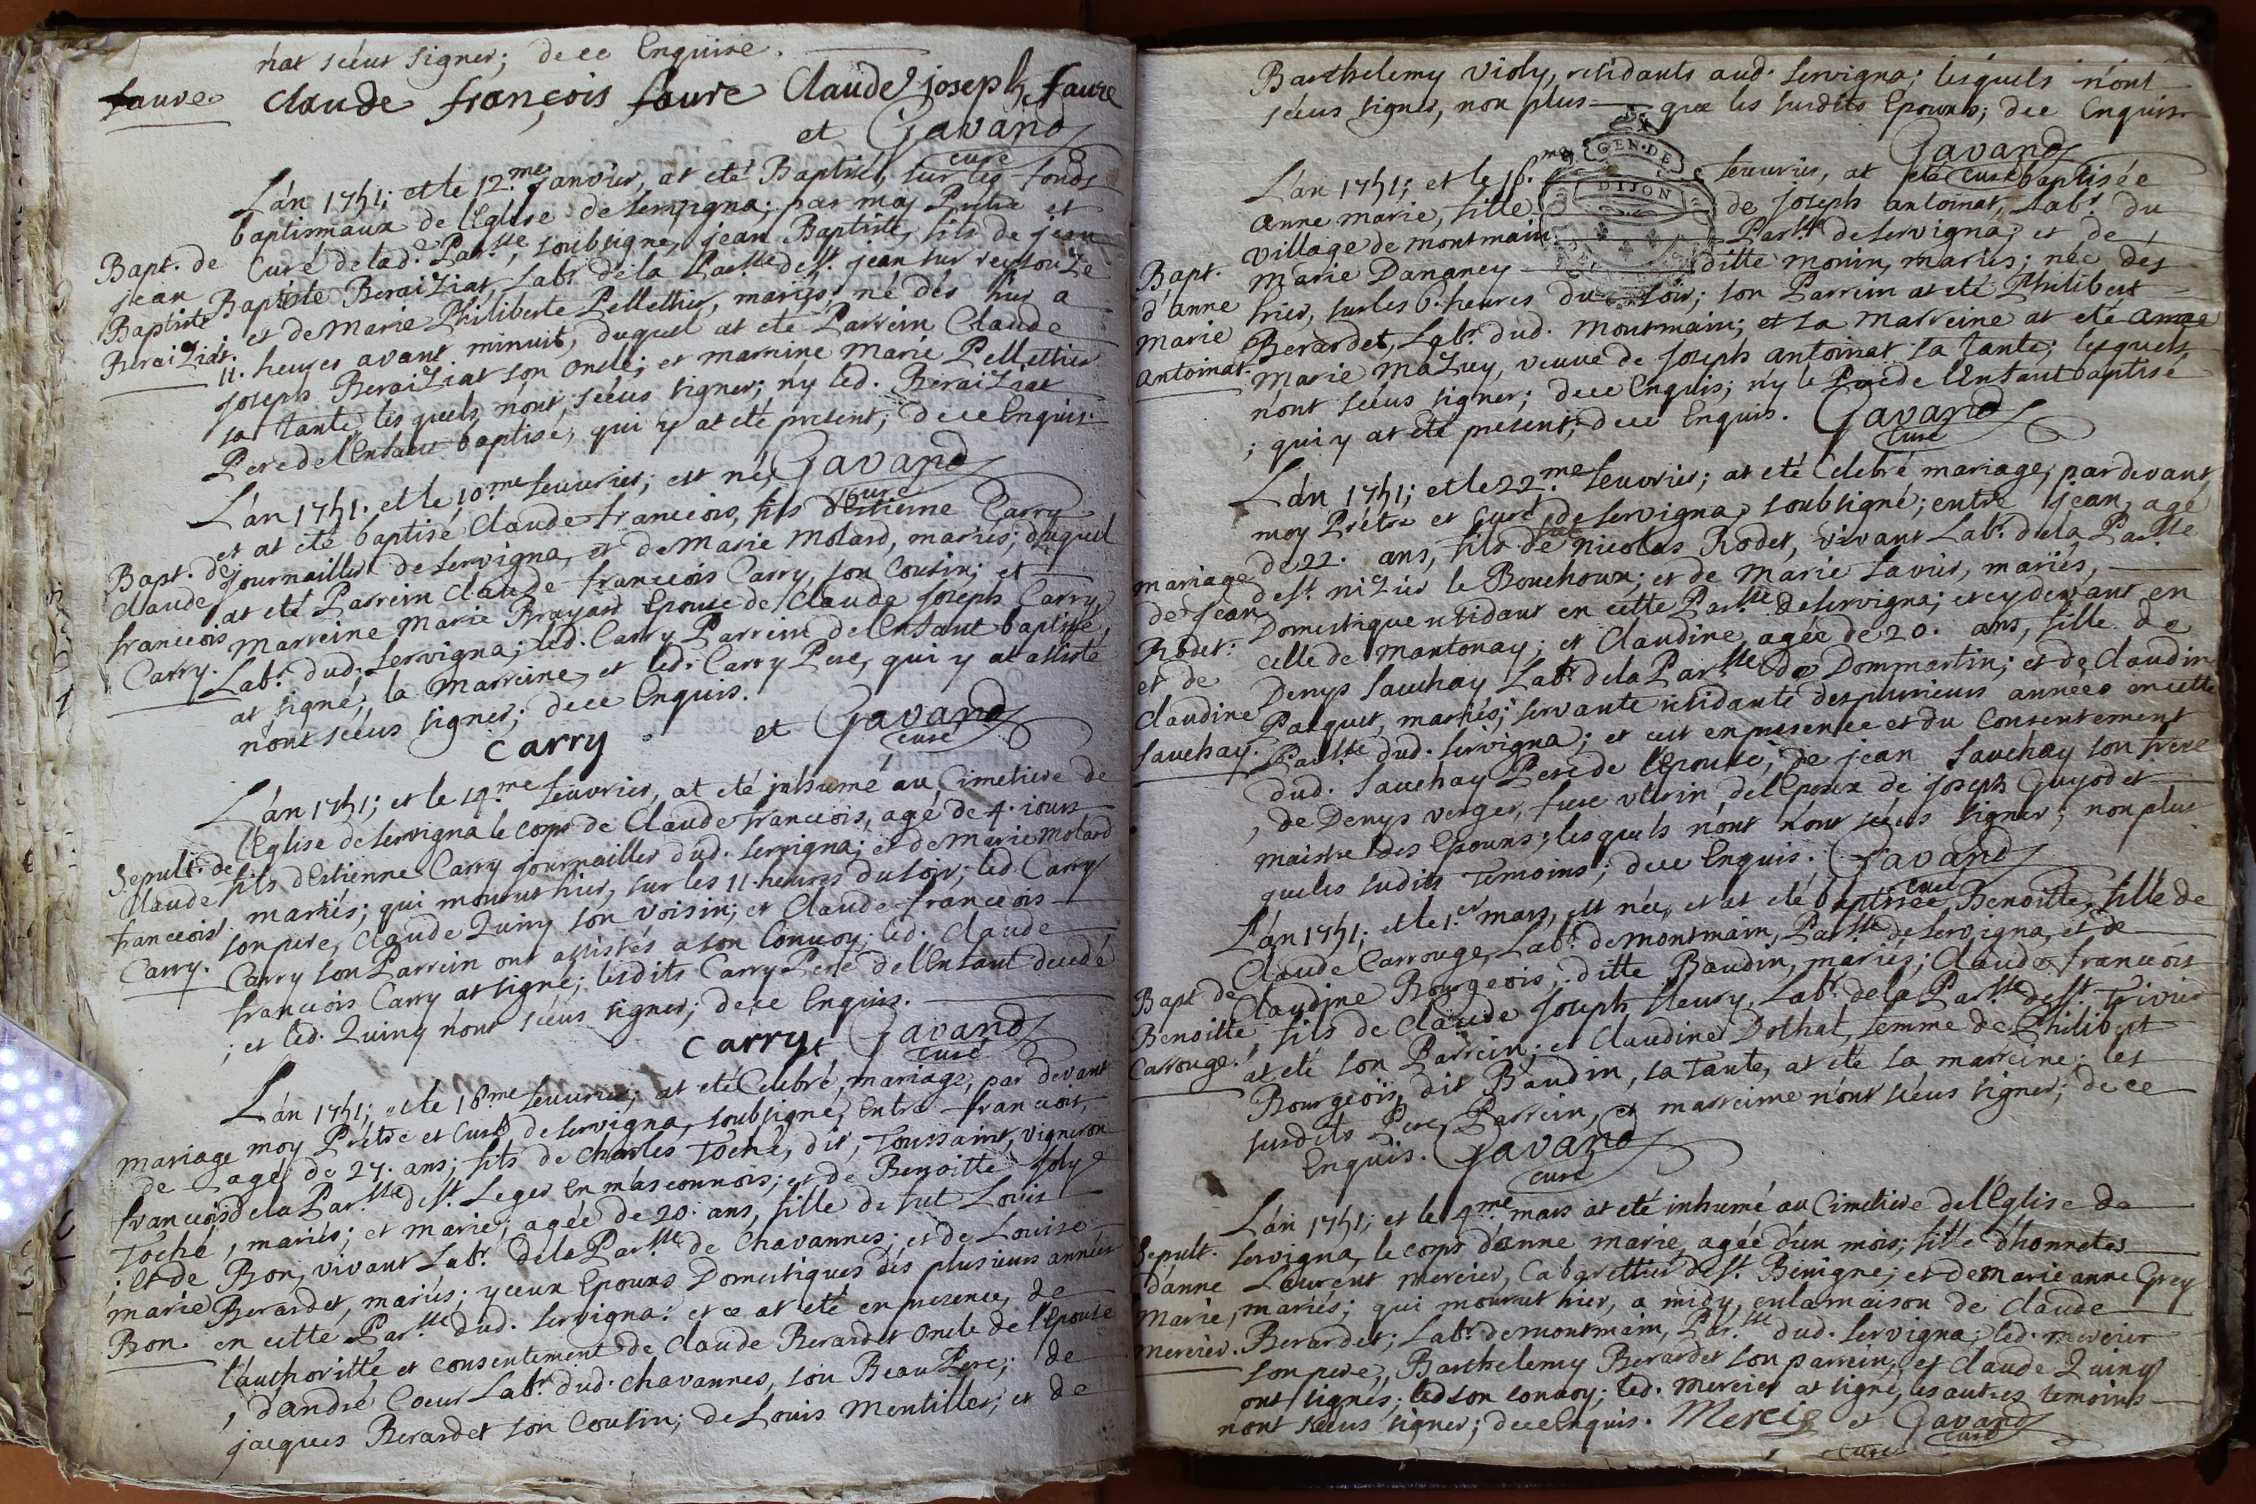 n'at sceus signer; de ce Enquise.
faure claude françois faure Claude joseph faure
et Gavand
curé
L'án 1751; et le 12.me janvier, at eté Baptisé, sur les fonds
baptismaux de l'Eglise de servigna; par moy Prêtre et
Curé de lad.e Par.sse, soubsigné, jean Baptiste, fils de jean
Bapt. de
jean
Baptiste
BeraiZiat.
Baptiste BeraiZiat, Labr. de la Par.sse de st. jean sur reyssouZe
et de Marie Philiberte Pellettier, mariés; né dés hier a
11. heures avant minuit, duquel at eté Parrein Claude
joseph BeraiZiat son oncle; et marreine Marie Pellettier
sa tante, lesquels n'ont sceus signer; n'y led. BeraiZiat
Pere de l'Enfant baptisé, qui y at eté present; de ce Enquis.
Gavand
curé
L'án 1751. et le 10.me feuvrier; est né,
et at eté baptisé Claude francois, fils d'Estienne Carry
Bapt. de
Claude
francois
Carry.
journaillier de servigna, et de Marie Molard, mariés; duquel
at eté Parrein Claude francois Carry, son Cousin; et
Marreine Marie Brayard Epouse de Claude joseph Carry,
Labr. dud. servigna; led. Carry Parrein de l'Enfant baptisé,
at signé, la Marreine, et led. Carry Pere, qui y at assisté
n'ont sceus signer; de ce Enquis.
Carry et Gavand
curé
L'án 1751; et le 14.me feuvrier, at eté inhumé au Cimetiere de
l'Eglise de servigna le corps de Claude francois, agé de 4. iours
Sepult. de
Claude
francois
Carry.
fils d'Estienne Carry journaillier dud. servigna; et de Marie Molard
mariés; qui mourut hier, sur les 11. heures du soir; led. Carry
son pere, Claude Quiny son voisin; et Claude francois
Carry son Parrein ont assistés a son Convoy; led. Claude
francois Carry at signé; lesdits Carry Pere de l'Enfant decedé
; et led. Quiny n'ont sceus signer; de ce Enquis.
Carry et Gavand
curé
L'án 1751; et le 18.me feuvrier; at eté Celebré, mariage, par devant
moy Prêtre et Curé de servigna, soubsigné; Entre francois,
mariage
de
francois
Toché
; et de
marie
Bon.
agé de 27. ans; fils de Charles Toché, dit, Toussaint, vigneron
de la Par.sse de st. Leger En másconnois; et de Benoitte joly
, mariés; et marie; agée de 20. ans, fille de fut Louis
Bon, vivant Labr. de la Par.sse de Chavannes; et de Louise
Berardet, mariés; yceux Epoux Domestiques dés plusieurs années
en cette Par.sse dud. servigna: et ce at eté en presence, de
l'authoritté et consentement de Claude Berardet oncle de l'Epouse
, d'andré Coeur Labr. dud. Chavannes, son Beau Pere; de
jacques Berardet son Cousin; de Louis Mentiller; et de
Barthelemy Violy, residants aud. servigna; lesquels n'ont
sceus signer, non plus que les susdits Epoux; de ce Enquis
Gavand
curé
GEN. DE
DIJON
L'án 1751; et le 16.me feuvrier, at eté baptisée
anne marie, fille de joseph antoinat, Labr. du
village de montmain Par.sse de servigna; et de
Bapt.
d'anne
marie
antoinat.
Marie Dananey ditte monin, mariés; née dés
hier, sur les 6. heures du soir; son Parrein at eté Philibert
Berardet, Labr. dud. montmain; et sa Marreine at eté anne
Marie MaZuy, veuve de joseph antoinat sa tante; lesquels
n'ont sceus signer; de ce Enquis; n'y le Pere de l'Enfant baptisé
; qui y at eté present; de ce Enquis. Gavand
curé
L'án 1751; et le 22.me feuvrier; at eté Celebré mariage; par devant
moy Prêtre et curé de servigna, soubsigné; entre jean, agé
de 22. ans, fils de fut nicolas Rodet, vivant Labr. de la Par.sse
mariage
de jean
Rodet:
et de
Claudine
Sauchay.
de st. niZier le Bouchoux; et de Marie Favier, mariés,
Domestique residant en cette Par.sse de servigna; et cy devant en
celle de Mantonay; et Claudine, agée de 20. ans, fille de
Denys Sauchay Labr. de la Par.sse de Dommartin; et de Claudine
Pasquet, mariés; servante residante des plusieurs années en cette
Par.sse dud. servigna; et cest en presence et du Consentement
dud. Sauchay Pere de l'Epouse; de jean Sauchay son frere
, de Denys verger, frere vterin, de l'Epoux de joseph Guyodet
maistre des Epoux; lesquels n'ont n'ont sceus signer; non plus
que les sudits Temoins; de ce Enquis. Gavand
curé
L'án 1751; et le 1.er mars, est née, et at eté baptisée Benoitte, fille de
Claude Carrouge, Labr. de montmain, Par.sse de servigna, et de
Bapt. de
Benoitte
Carrouge.
Claudine Bourgeois, ditte Baudin, mariés; Claude francois
, fils de Claude joseph fleury, Labr. de la Par.sse de st. Trivier
at eté son Parrein; et Claudine Dothal, femme de Philibert
Bourgeois, dit Baudin, sa Tante, at eté sa marreine; les
susdits Pere, Parrein, et marreine n'ont sceus signer; de ce
Enquis. Gavand
curé
L'án 1751; et le 4.me mars at eté inhumé au Cimetiere de l'Eglise de
servigna, le corps d'anne marie, agée d'un mois; fille d'honnetes
Sepult.
d'anne
Marie,
mercier.
Laurent mercier, Cabarettier de st. Benigne; et de marie anne Grey
mariés; qui mourut hier, a midy, en la maison de Claude
Berardet; Labr. de montmain, Par.sse dud. servigna; led. mercier
son pere, Barthelemy Berardet son parrein, et Claude Quiny
ont signés; led son convoy; led. Mercier at signé, les autres temoins
n'ont sceus signer; de ce Enquis. Mercie et Gavand
curé